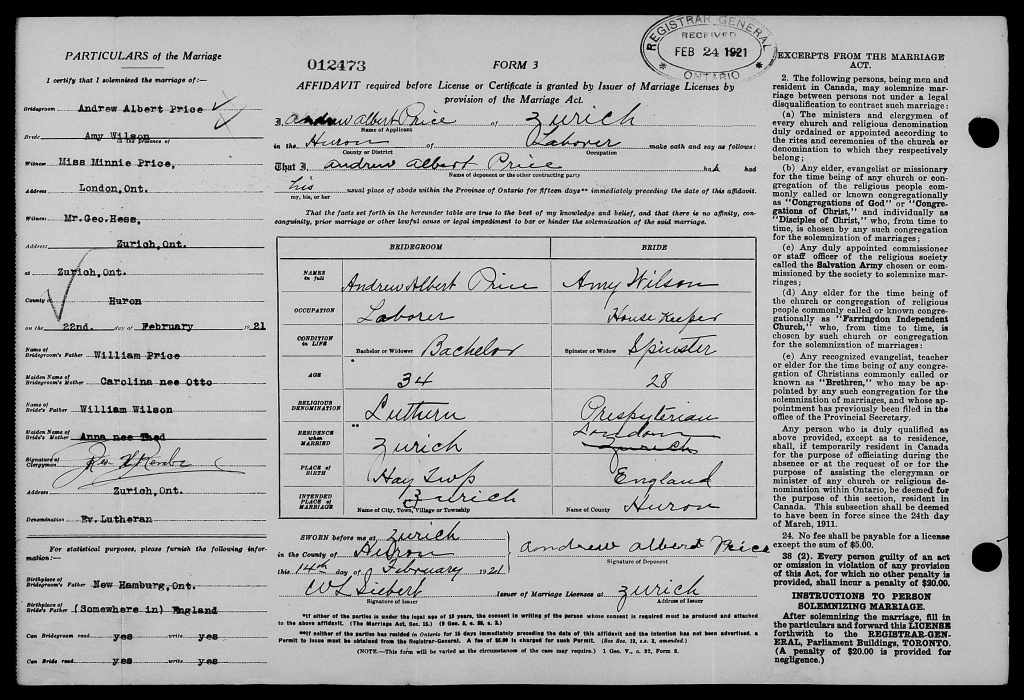 PARTICULARS of the Marriage
I certify that I solemnized the marriage of:—
Bridegroom Andrew Albert Price
Bride Amy Wilson
in the presence of
Witness Miss Minnie Price,
Address London,Ont.
Witness Mr.Geo.Hess,
Address Zurich,Ont.
at Zurich,Ont.
County of Huron
on the 22nd. day of February 1921
Name of Bridegroom's Father William Price
Maiden Name of Bridegroom's Mother Carolina nee Otto
Name of Bride's Father William Wilson
Maiden Name of Bride's Mother Anna nee
Signature of Clergyman Rev
Address Zurich,Ont.
Denomination Ev.Lutheran
For statistical purposes, please furnish the following information:—
Birthplace of Bridegroom's Father New Hamburg,Ont.
Birthplace of Bride's Father (Somewhere in) England
Can Bridegroom read yes write yes
Can Bride read yes write yes
012473
FORM 3
REGISTRAR GENERAL
RECEIVED
FEB 24 1921
ONTARIO
AFFIDAVIT required before License or Certificate is granted by Issuer of Marriage Licenses by
provision of the Marriage Act.
I, Andrew Albert Price of Zurich
Name of Applicant
in the Huron of Laborer make oath and say as follows:
County or District Occupation
That I andrew albert Price had had
Name of deponent or the other contracting party
his usual place of abode within the Province of Ontario for fifteen days** immediately preceding the date of this affidavit.
my, his, or her
That the facts set forth in the hereunder table are true to the best of my knowledge and belief, and that there is no affinity, con-
sanguinity, prior marriage or other lawful cause or legal impediment to bar or hinder the solemnization of the said marriage.
BRIDEGROOM BRIDE
NAMES in full Andrew Albert Price Amy Wilson
OCCUPATION Laborer House Keeper
CONDITION in LIFE Bachelor or Widower Bachelor Spinster or Widow Spinster
AGE * 34 28
RELIGIOUS DENOMINATION Luthern Presbyterian
RESIDENCE when MARRIED ** Zurich London Zurich
PLACE OF BIRTH Hay Twp England
INTENDED PLACE of MARRIAGE Zurich Huron
Name of City, Town, Village or Township Name of County
SWORN before me at Zurich
in the County of Huron
this 14th day of February 1921
andrew albert Price
Signature of Deponent
W L Siebert Issuer of Marriage Licenses at Zurich
Signature of Issuer Address of Issuer
*If either of the parties is under the legal age of 18 years, the consent in writing of the person whose consent is required must be produced and attached
to the above affidavit. (The Marriage Act, Sec. 15.)
**If neither of the parties has resided in Ontario for 15 days immediately preceding the date of this affidavit and the intention has not been advertised, a
Permit to Issue must be obtained from the Registrar-General. A fee of $5.00 is charged for such Permit.
(NOTE.—This form will be varied as the circumstances of the case may require.) 1 Geo. V., c. 32, Form 3.
EXCERPTS FROM THE MARRIAGE
ACT.
2. The following persons, being men and
resident in Canada, may solemnize mar-
riage between persons not under a legal
disqualification to contract such marriage:
(a) The ministers and clergymen of
every church and religious denomination
duly ordained or appointed according to
the rites and ceremonies of the church or
denomination to which they respectively
belong;
(b) Any elder, evangelist or missionary
for the time being of any church or con-
gregation of the religious people com-
monly called or known as congregations
as "Congregations of God" or "Congre-
gations of Christ," and individually as
"Disciples of Christ," who, from time to
time, is chosen by any such congregation
for the solemnization of marriages;
(c) Any duly appointed commissioner
or staff officer of the religious society
called the Salvation Army chosen or com-
missioned by the society to solemnize mar-
riages;
(d) Any elder for the time being of
the church or congregation of religious
people commonly called or known congre-
gationally as "Farringdon Independent
Church," who, from time to time, is
chosen by such church or congregation
for the solemnization of marriage:
(e) Any recognized evangelist, teacher
or elder for the time being of any congre-
gation of Christians commonly called or
known as "Brethren," who may be ap-
pointed by any such congregation for the
solemnization of marriages, and whose ap-
pointment has previously been filed in the
office of the Provincial Secretary.
Any person who is duly qualified as
above provided, except as to residence,
shall, if temporarily resident in Canada
for the purpose of officiating during the
absence or at the request of or for the
purpose of assisting the clergyman or
minister of any church or religious de-
nomination within Ontario, be deemed for
the purpose of this section, resident in
Canada. This subsection shall be deemed
to have been in force since the 24th day
of March, 1911.
24. No fee shall be payable for a license
except the sum of $5.00.
38 (2). Every person guilty of an act
or omission in violation of any provision
of this Act, for which no other penalty is
provided, shall incur a penalty of $20.00.
INSTRUCTIONS TO PERSON
SOLEMNIZING MARRIAGE.
After solemnizing the marriage, fill in
the particulars and forward this LICENSE
forthwith to the REGISTRAR-GEN-
ERAL, Parliament Buildings, TORONTO.
(A penalty of $20.00 is provided for
negligence.)